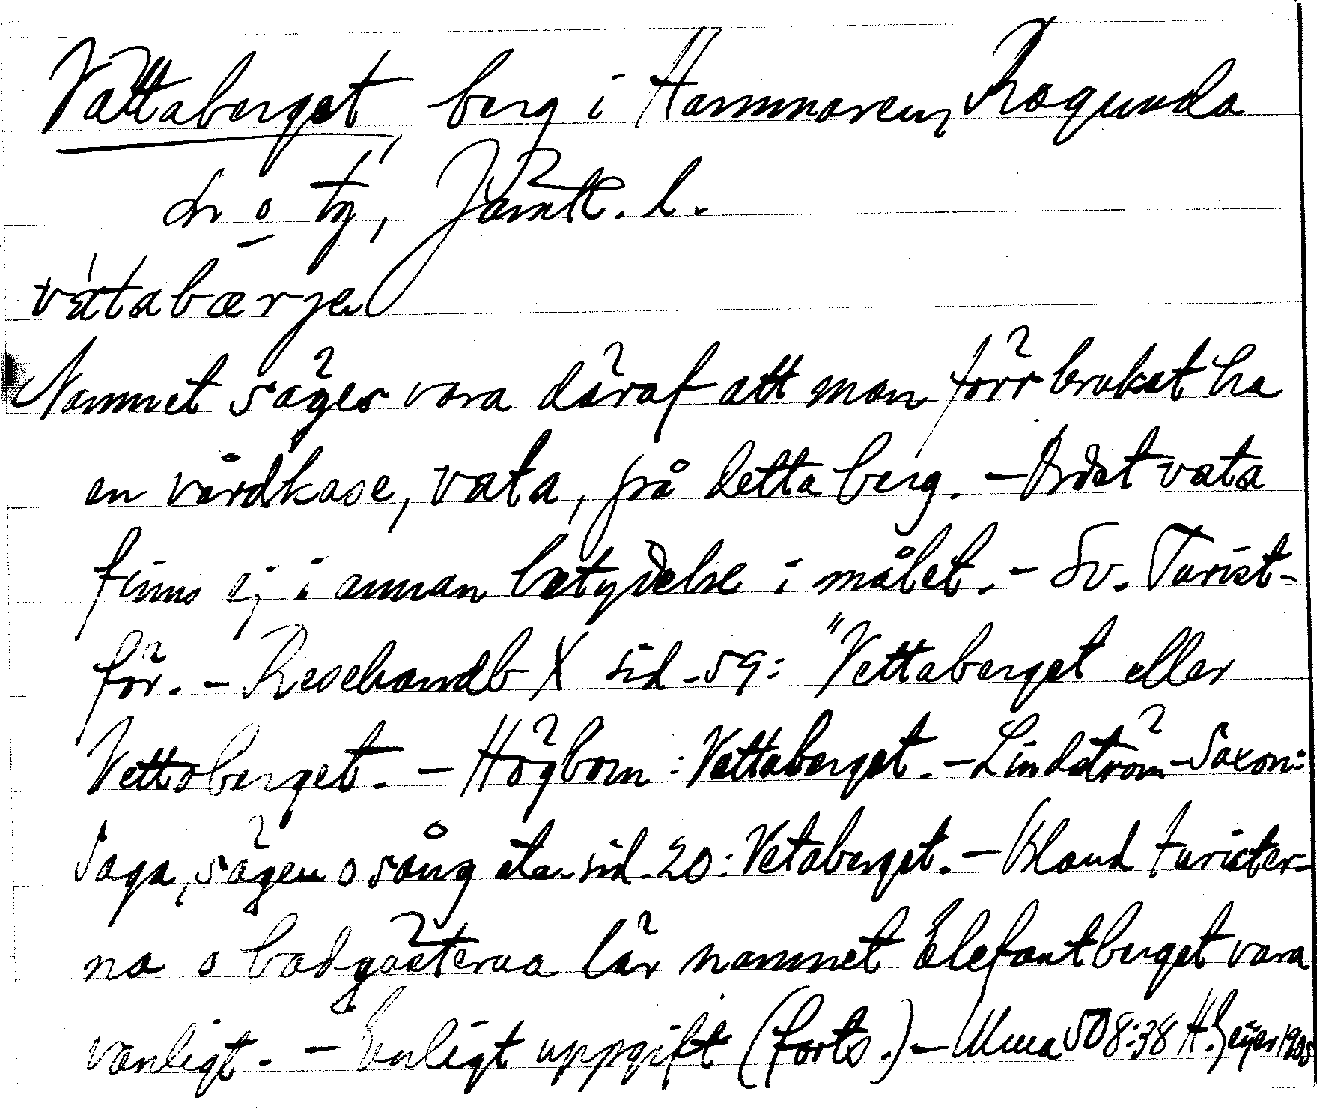 Vättaberget, berg i Hammaren, Ragunda
sn o tg, Jämtl. l.
vátabærje
Namnet säges vara däraf att man förr brukat ha
en vårdkase, vata, på detta berg. – Ordet vata
finns ej i annan betydelse i målet. – Sv. Turist-
för. – Resehandb X sid. 59: "Vettaberget eller
Vettoberget. – Högbom: Vettaberget. – Lindström-Saxon:
Saga, sägen o sång etc. sid. 20: Vetaberget. – Bland turister-
na o badgästerna lär namnet Elefantberget vara
vanligt. – Enligt uppgift (forts.) – Ulma 508:38 H. Geijer 1905